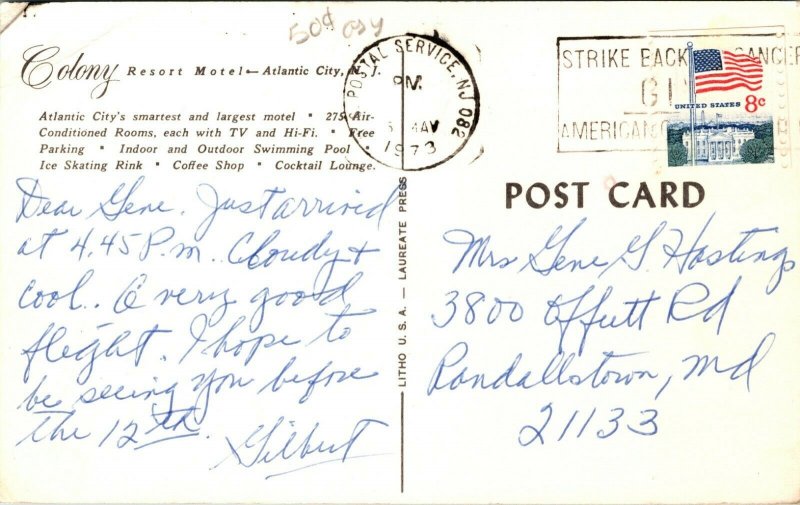 50¢
Colony Resort Motel — Atlantic City, N. J.
Atlantic City's smartest and largest motel • 275 Air-
Conditioned Rooms, each with TV and Hi-Fi. • Free
Parking • Indoor and Outdoor Swimming Pool •
Ice Skating Rink • Coffee Shop • Cocktail Lounge.
Dear Gene. Just arrived
at 4.45 P.m. Cloudy +
cool. A very good
flight. I hope to
be seeing you before
the 12th.
Gilbert
LITHO U. S. A. — LAUREATE PRESS
POSTAL SERVICE, NJ 082
PM
MAY
1973
STRIKE BACK CANCER
AMERICAN
UNITED STATES 8c
POST CARD
Mrs Gene G. Hastings
3800 Offutt Rd
Randallstown, Md
21133